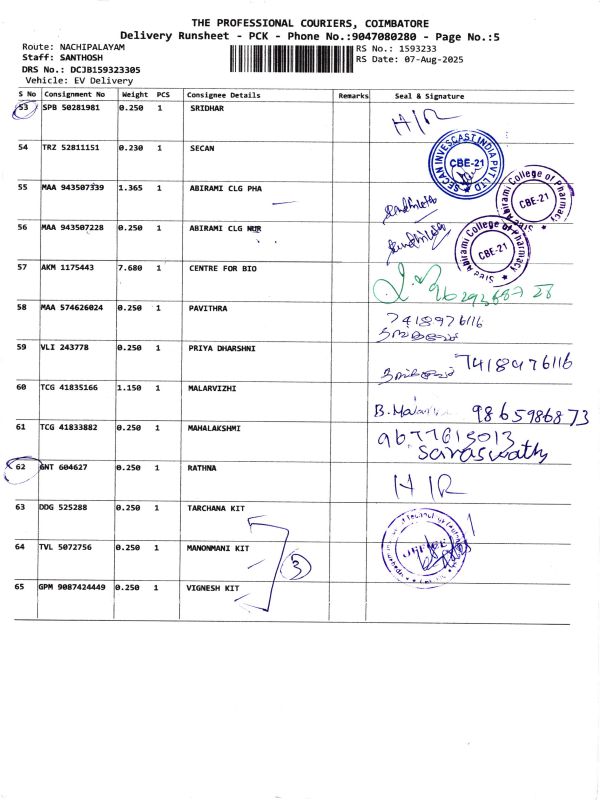 THE PROFESSIONAL COURIERS, COIMBATORE
Delivery Runsheet - PCK - Phone No.:9047080280 - Page No.:5
Route: NACHIPALAYAM
RS No.: 1593233
Staff: SANTHOSH
RS Date: 07-Aug-2025
DRS No.: DCJB159323305
Vehicle: EV Delivery
S No Consignment No Weight PCS Consignee Details Remarks Seal & Signature
53 SPB 50281981 0.250 1 SRIDHAR H/R
54 TRZ 52811151 0.230 1 SECAN
SECAN INVESCAST INDIA PVT LTD
CBE-21
55 MAA 943507339 1.365 1 ABIRAMI CLG PHA
Abirami College of Pharmacy
CBE-21
56 MAA 943507228 0.250 1 ABIRAMI CLG NUR
Abirami College of Pharmacy
CBE-21
57 AKM 1175443 7.680 1 CENTRE FOR BIO
58 MAA 574626024 0.250 1 PAVITHRA 7418976116
59 VLI 243778 0.250 1 PRIYA DHARSHNI 7418976116
60 TCG 41835166 1.150 1 MALARVIZHI B. 9865986873
61 TCG 41833882 0.250 1 MAHALAKSHMI 9677615013
Saraswathy
62 GNT 604627 0.250 1 RATHNA H/R
63 DDG 525288 0.250 1 TARCHANA KIT
64 TVL 5072756 0.250 1 MANONMANI KIT 3
OFFICE
65 GPM 9087424449 0.250 1 VIGNESH KIT